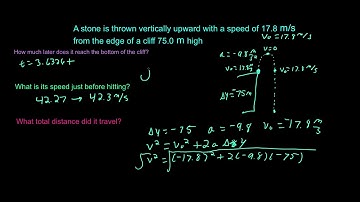 A stone is thrown vertically upward with a speed of 17.8 m/s
from the edge of a cliff 75.0 m high
How much later does it reach the bottom of the cliff?
t = 3.6326 +
What is its speed just before hitting?
42.27 → 42.3 m/s
What total distance did it travel?
V₀ = 17.8 m/s
a = -9.8 m/s²
v=0
V₀ = 17.8
V₀ = -17.8 m/s
Δy = -75m
Δy = -75 a = -9.8 V₀ = -17.8 m/s
V² = V₀² + 2a Δy
√V² = √(-17.8)² + 2(-9.8)(-75)